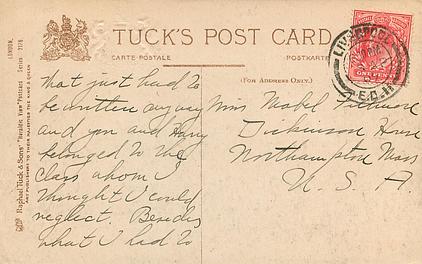 TUCK'S POST CARD
CARTE POSTALE
POSTKARTE
(FOR ADDRESS ONLY.)
LIVERPOOL
DE 11
ONE PENNY
LONDON.
Raphael Tuck & Sons' "Heraldic View" Postcard Series 2176
ART PUBLISHERS TO THEIR MAJESTIES THE KING & QUEEN
that just had to
be written anyway
and you and
belonged to the
class whom I
thought I could
neglect. Besides
what I had to
Miss Mabel
Dickinson House
Northampton Mass
U. S. A.